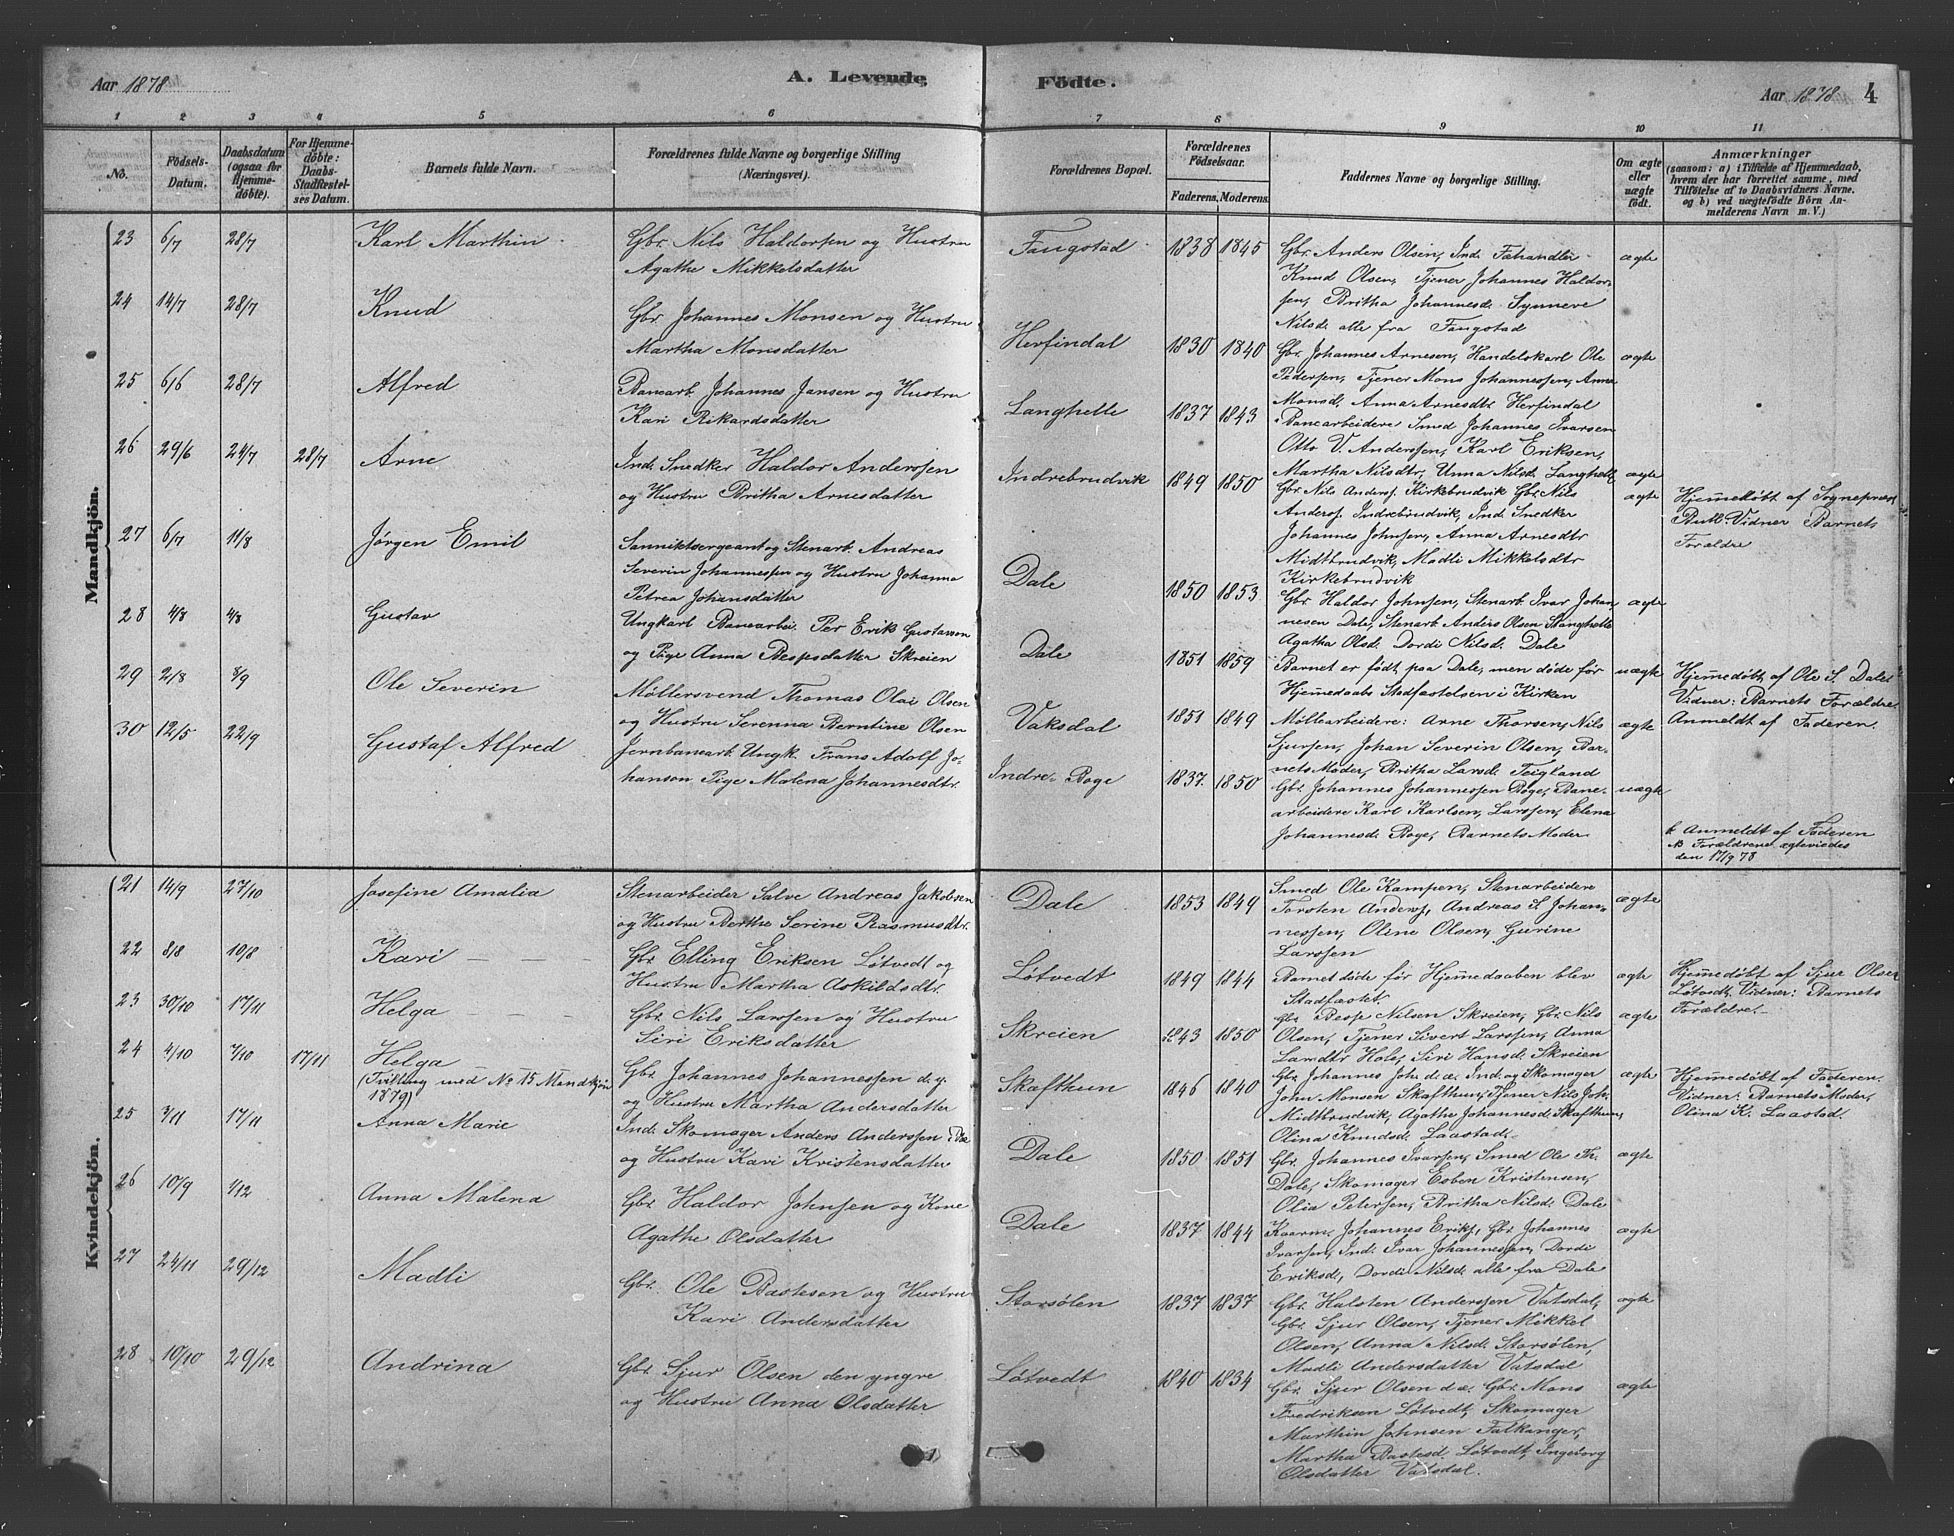 Aar 1878
A. Levende
Födte.
Aar 1878
4
1 2 3 4 5 6 7 8 9 10 11
No.
Födsels-
Datum.
Daabsdatum
(ogsaa for
Hjemme-
döbte).
For Hjemme-
döbte:
Daabs-
Stadfæstel-
ses Datum.
Barnets fulde Navn.
Forældrenes fulde Navne og borgerlige Stilling
(Næringsvei).
Forældrenes Bopæl.
Forældrenes
Födselsaar.
Faderens. Moderens.
Faddernes Navne og borgerlige Stilling.
Om ægte
eller
uægte
födt.
Anmærkninger
(saasom: a) i Tilfælde af Hjemmedaab,
hvem der har forrettet samme, med
Tilföielse af to Daabsvidners Navne.
og b) ved uægtefödte Börn An-
melderens Navn m. V.)
Mandkjön.
23 6/7 28/7 Karl Marthin
Gbr. Nils Haldorsen og Hustru
Agathe Mikkelsdatter
Fangstad 1838 1845
Gbr. Anders Olsen, Ind. Fæhandler
Knud Olsen, Tjener Johannes Haldor-
sen, Britha Johannesd. Synneve
Nilsd. alle fra Fangstad
ægte
24 14/7 28/7 Knud
Gbr. Johannes Monsen og Hustru
Martha Monsdatter
Herfindal 1830 1840
Gbr. Johannes Arnesen, Handelskarl Ole
Pedersen, Tjener Mons Johannessen, Anna
Monsd. Anna Arnesdt. Herfindal
ægte
25 6/6 28/7 Alfred
Banearb. Johannes Jansen og Hustru
Kari Rikardsdatter
Langhelle 1837 1843
Banearbeidere Smed Johannes Ivarsen
Otto V. Anderssen, Karl Eriksen,
Martha Nilsdtr, Unna Nilsd. Langhelle
ægte
26 29/6 24/7 28/7 Arne
Ind. Snedker Haldor Anderssen
og Hustru Britha Arnesdatter
Indrebrudvik 1849 1850
Gbr. Nils Anders. Kirkebrudvik Gbr. Nils
Anders. Indrebrudvik, Ind. Snedker
Johannes Johnsen, Anna Arnesdtr
Midtbrudvik, Madli Mikkelsdtr
Kirkebrudvik
ægte
Hjemmedøbt af Sognepræst
Vidner Barnets
Forældre
27 6/7 11/8 Jørgen Emil
Andreas
Severin Johannessen og Hustru Johanna
Petrea Johansdatter
Dale 1850 1853
Gbr. Haldor Johnsen, Stenarb. Ivar Johan-
nesen Dale, Stenarb. Anders Olsen Stanghelle
Agatha Olsd. Dordi Nilsd. Dale
ægte
28 4/8 4/8 Gustav
Ungkarl Banearbei. Per Erik Gustavsson
og Pige Anna Bespsdatter Skreien
Dale 1851 1859
Barnet er født paa Dale, men døde før
Hjemmedaabs Stadfæstelsen i Kirken
uægte
Hjemmedøbt af Ole S. Dale
Vidner: Barnets Forældre
Anmeldt af Faderen.
29 2/8 8/9 Ole Severin
Møllersvend Thomas Olai Olsen
og Hustru Serenna Berntine Olsen
Vaksdal 1851 1849
Møllearbeidere: Arne Thorsen, Nils
Sjursen, Johan Severin Olsen, Bar-
nets Moder, Britha Larsd. Teigland
ægte
30 12/5 22/9 Gustaf Alfred
Jernbanearb. Ungk. Frans Adolf Jo-
hanson Pige Malena Johannesdtr.
Indre Boge 1837. 1850
Gbr. Johannes Johannessen Boge, Bane-
arbeidere Karl Karlsen, Larssen, Elena
Johannesd. Boge, Barnets Moder
uægte
b Anmeldt af Faderen
NB Forældrene ægteviedes
den 17/9 78
Kvindekjön.
21 14/9 27/10 Josefine Amalia
Stenarbeider Salve Andreas Jakobsen
og Hustru Berthe Serine Rasmusdtr.
Dale 1853 1849
Smed Ole Kampen, Stenarbeidere
Torsten Anders., Andreas S. Johan-
nessen, Oline Olsen, Gurine
Larssen
ægte
22 8/8 10/8 Kari
Gbr. Elling Eriksen Løtvedt og
Hustru Martha Askildsdtr.
Løtvedt 1849 1844
Barnet døde før Hjemmedaaben blev
Stadfæstet.
ægte
Hjemmedøbt af Sjur Olsen
Løtvedt, Vidner: Barnets
Forældre.
23 30/10 17/11 Helga
Gbr. Nils Larssen og Hustru
Siri Eriksdatter
Skreien 1843 1850
Gbr. Besse Nilsen Skreien, Gbr. Nils
Olsen, Tjener Sivert Larssen, Anna
Larsdtr Hole, Siri Hansd. Skreien
ægte
24 4/10 7/10 17/11 Helga
(Tvilling med No 15 Mandkjøn
1879)
Gbr. Johannes Johannessen d. y.
og Hustru Martha Andersdatter
Skafthun 1846 1840
Gbr. Johannes Joh. d. æ. Ind. og Skomager
John Monsen Skafthun, Tjener Nils Joh.
Midtbrudvik, Agathe Johannesd. Skafthun,
Olina Knudsd. Laastad.
ægte
Hjemmedøbt af Faderen.
Vidner: Barnets Moder,
Olina K. Laastad.
25 3/11 17/11 Anna Marie
Ind. Skomager Anders Anderssen
og Hustru Kari Kristensdatter
Dale 1850 1851
Gbr. Johannes Ivarsen, Smed Ole Th.
Dale, Skomager Esben Kristensen,
Olia Petersen, Britha Nilsd. Dale
ægte
26 10/9 1/12 Anna Malena
Gbr. Haldor Johnsen og Kone
Agathe Olsdatter
Dale 1837 1844
Kaarm. Johannes Eriks., Gbr. Johannes
Ivarsen, Ind. Ivar Johannessen, Dordi
Eriksd., Dordi Nilsd. alle fra Dale
ægte
27 24/11 29/12 Madli
Gbr. Ole Bastesen og Hustru
Kari Andersdatter
Storsølen 1837 1837
Gbr. Halsten Anderssen Vatsdal,
Gbr. Sjur Olsen, Tjener Mikkel
Olsen, Anna Nilsd. Storsølen,
Madli Andersdatter Vatsdal
ægte
28 10/10 29/12 Andrina
Gbr. Sjur Olsen den yngre
og Hustru Anna Olsdatter
Løtvedt 1840 1834
Gbr. Sjur Olsen d. æ. Gbr. Mons
Fredriksen Løtvedt, Skomager
Marthin Johnsen Falkanger,
Martha Bastesd Løtvedt, Ingeborg
Olsdatter Vatsdal.
ægte